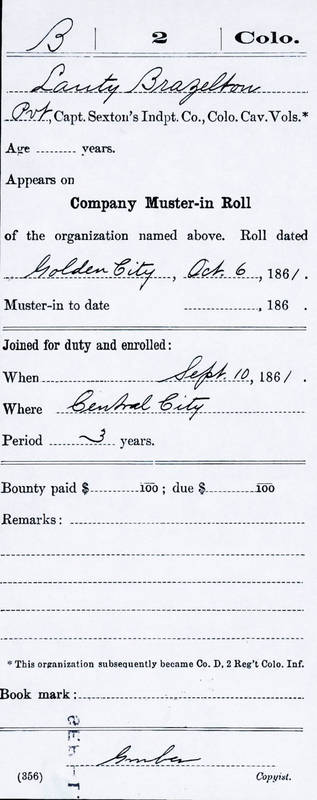 B | 2 | Colo.
Lanty Brazelton
Pvt, Capt. Sexton's Indpt. Co., Colo. Cav. Vols.*
Age ........ years.
Appears on
Company Muster-in Roll
of the organization named above. Roll dated
Golden City, Oct. 6, 1861.
Muster-in to date ........, 186 .
Joined for duty and enrolled:
When ........ Sept. 10, 1861.
Where Central City
Period 3 years.
Bounty paid $........ 100; due $........ 100
Remarks:
* This organization subsequently became Co. D, 2 Reg't Colo. Inf.
Book mark:
(356) Copyist.